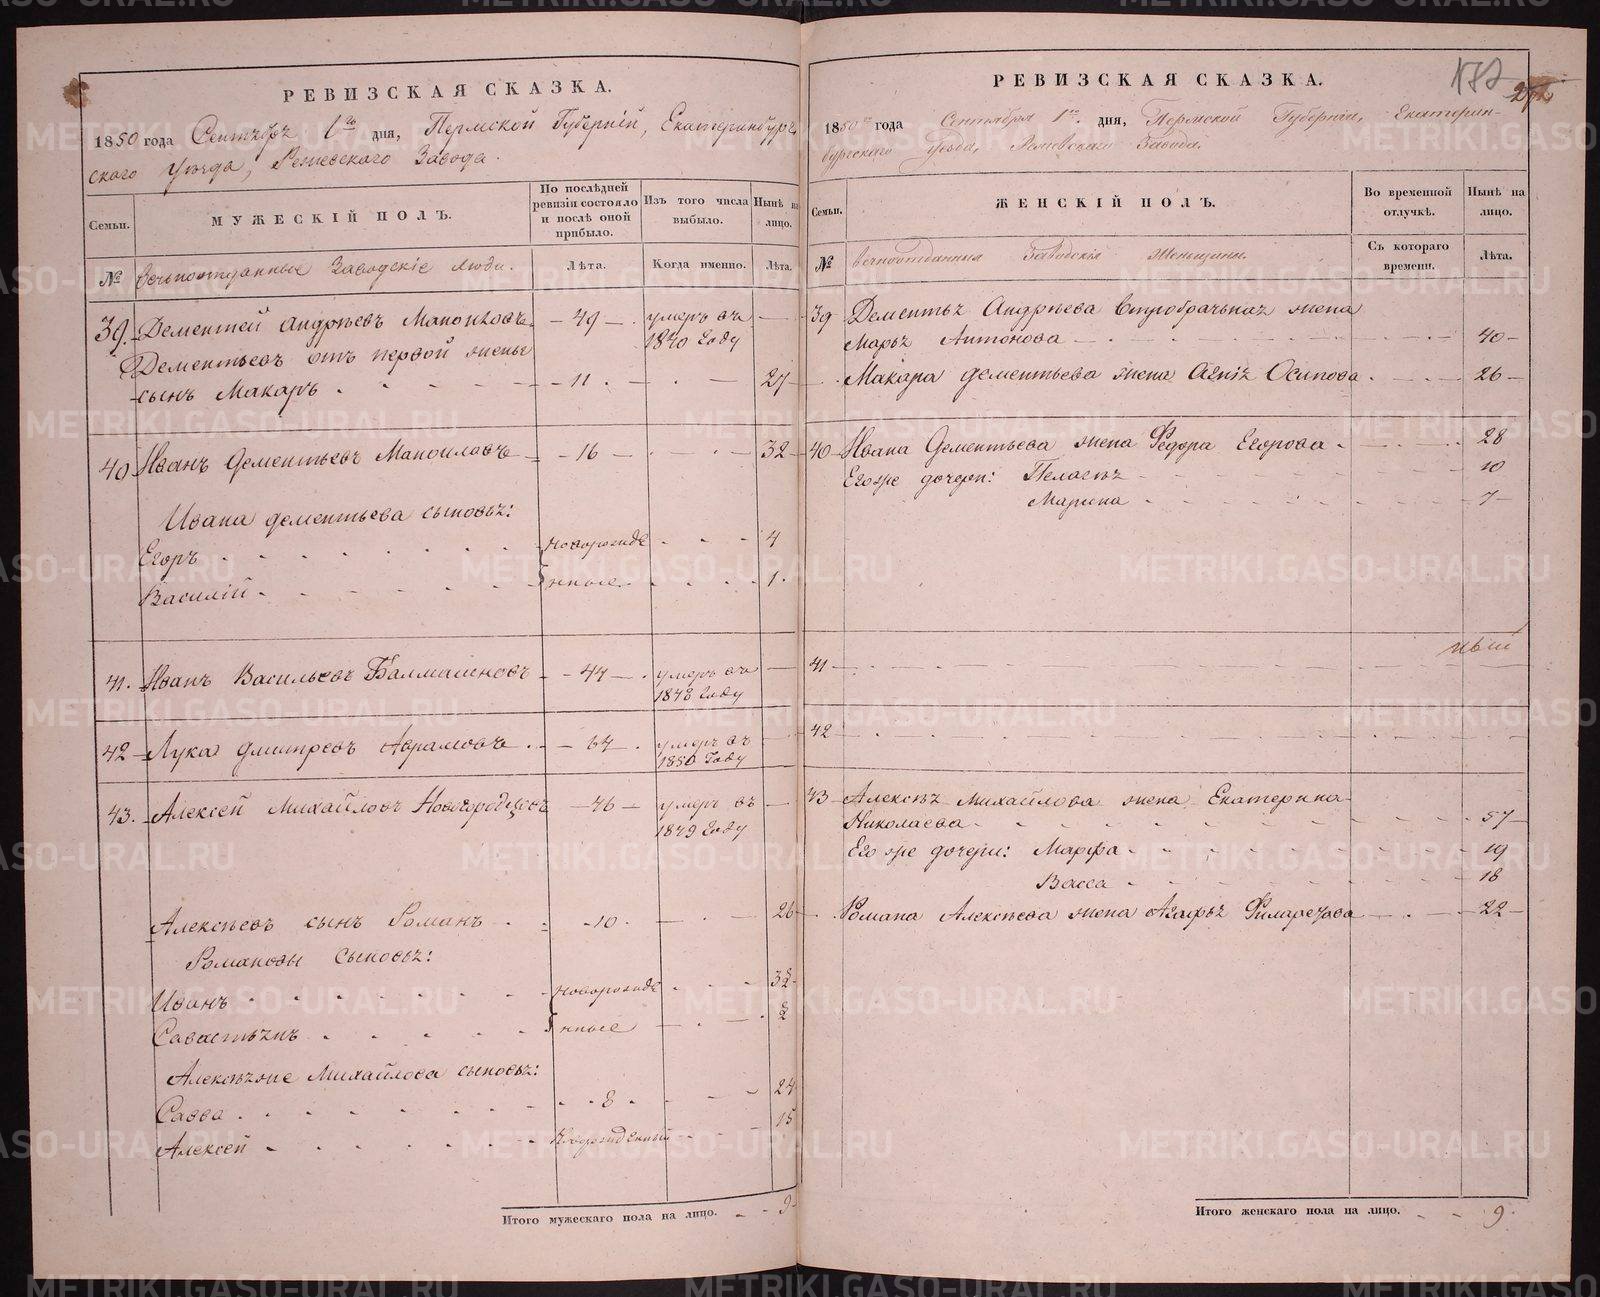 РЕВИЗСКАЯ СКАЗКА.
1850 года Сентября 1го дня, Пермской Губерніи, Екатеринбург-
скаго Уѣзда, Режевскаго Завода.
Семьи.
МУЖЕСКІЙ ПОЛЪ.
По послѣдней ревизіи состояло и послѣ оной прибыло.
Изъ того числа выбыло.
Нынѣ на лицо.
№
Вечноотданные Заводскіе люди.
Лѣта.
Когда именно.
Лѣта.
39. Дементей Андрѣевъ Маноиловъ - 49 - умеръ въ 1840 Году
Дементьевъ отъ первой жены
сынъ Макаръ - 11 - 27
40 Иванъ Дементьевъ Маноиловъ - 16 - 32
Ивана Дементьева сыновья:
Егоръ новорожде 4
Василій нные 1
41. Иванъ Васильевъ Балмашновъ - 44 - умеръ въ 1848 Году
42 Лука Дмитревъ Аврамовъ - 64 - умеръ въ 1850 Году
43. Алексей Михайловъ Новогородцовъ - 46 - умеръ въ 1849 Году
Алексѣевъ сынъ Романъ - 10 - 26
Романовы сыновья:
Иванъ новорожде
Савастьянъ нные 2
Алексѣяже Михайлова сыновья:
Савва 8 24
Алексей Новорожденный 15
Итого мужескаго пола на лицо. 9
РЕВИЗСКАЯ СКАЗКА.
1850го года Сентября 1го дня, Пермской Губерніи, Екатерин-
бургскаго Уѣзда, Режевскаго Завода.
Семьи.
ЖЕНСКІЙ ПОЛЪ.
Во временной отлучкѣ.
Нынѣ на лицо.
№
Вечноотданныя Заводскія Женщины.
Съ котораго времени.
Лѣта.
39 Дементья Андрѣева второбрачная жена
Марья Антонова 40
Макара Дементьева жена Агнія Осипова 26
40 Ивана Дементьева жена Федора Егорова 28
Егоже дочери: Пелагея 10
Марина 7
41
42
43 Алексѣя Михайлова жена Екатерина
Николаева 57
Его же дочери: Марфа 19
Васса 18
Романа Алексѣева жена Агафья Филаретова 22
Итого женскаго пола на лицо. 9
METRIKI.GASO-URAL.RU